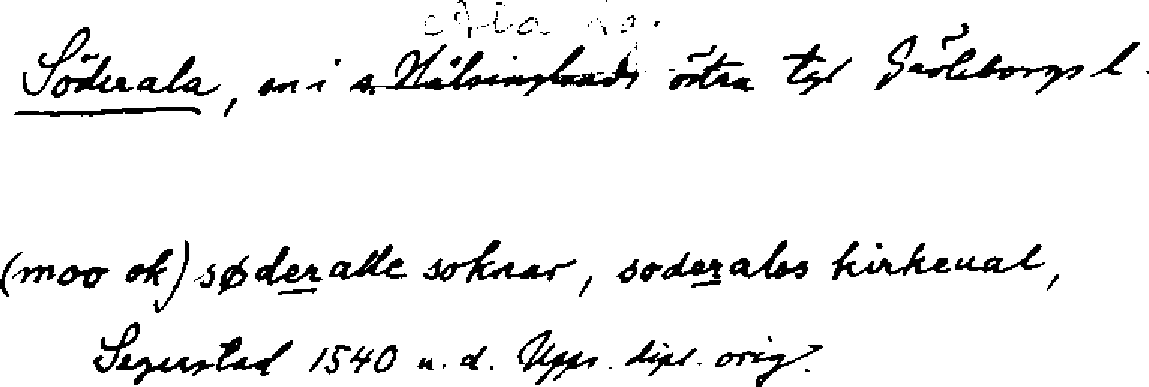 Ala
Söderala, sn i s. Hälsinglands östra tgl Gävleborgs l.
(moo ok) søderalle soknar, soderales kirkeual,
Segerstad 1540 u. d. Upps. dipl. orig.